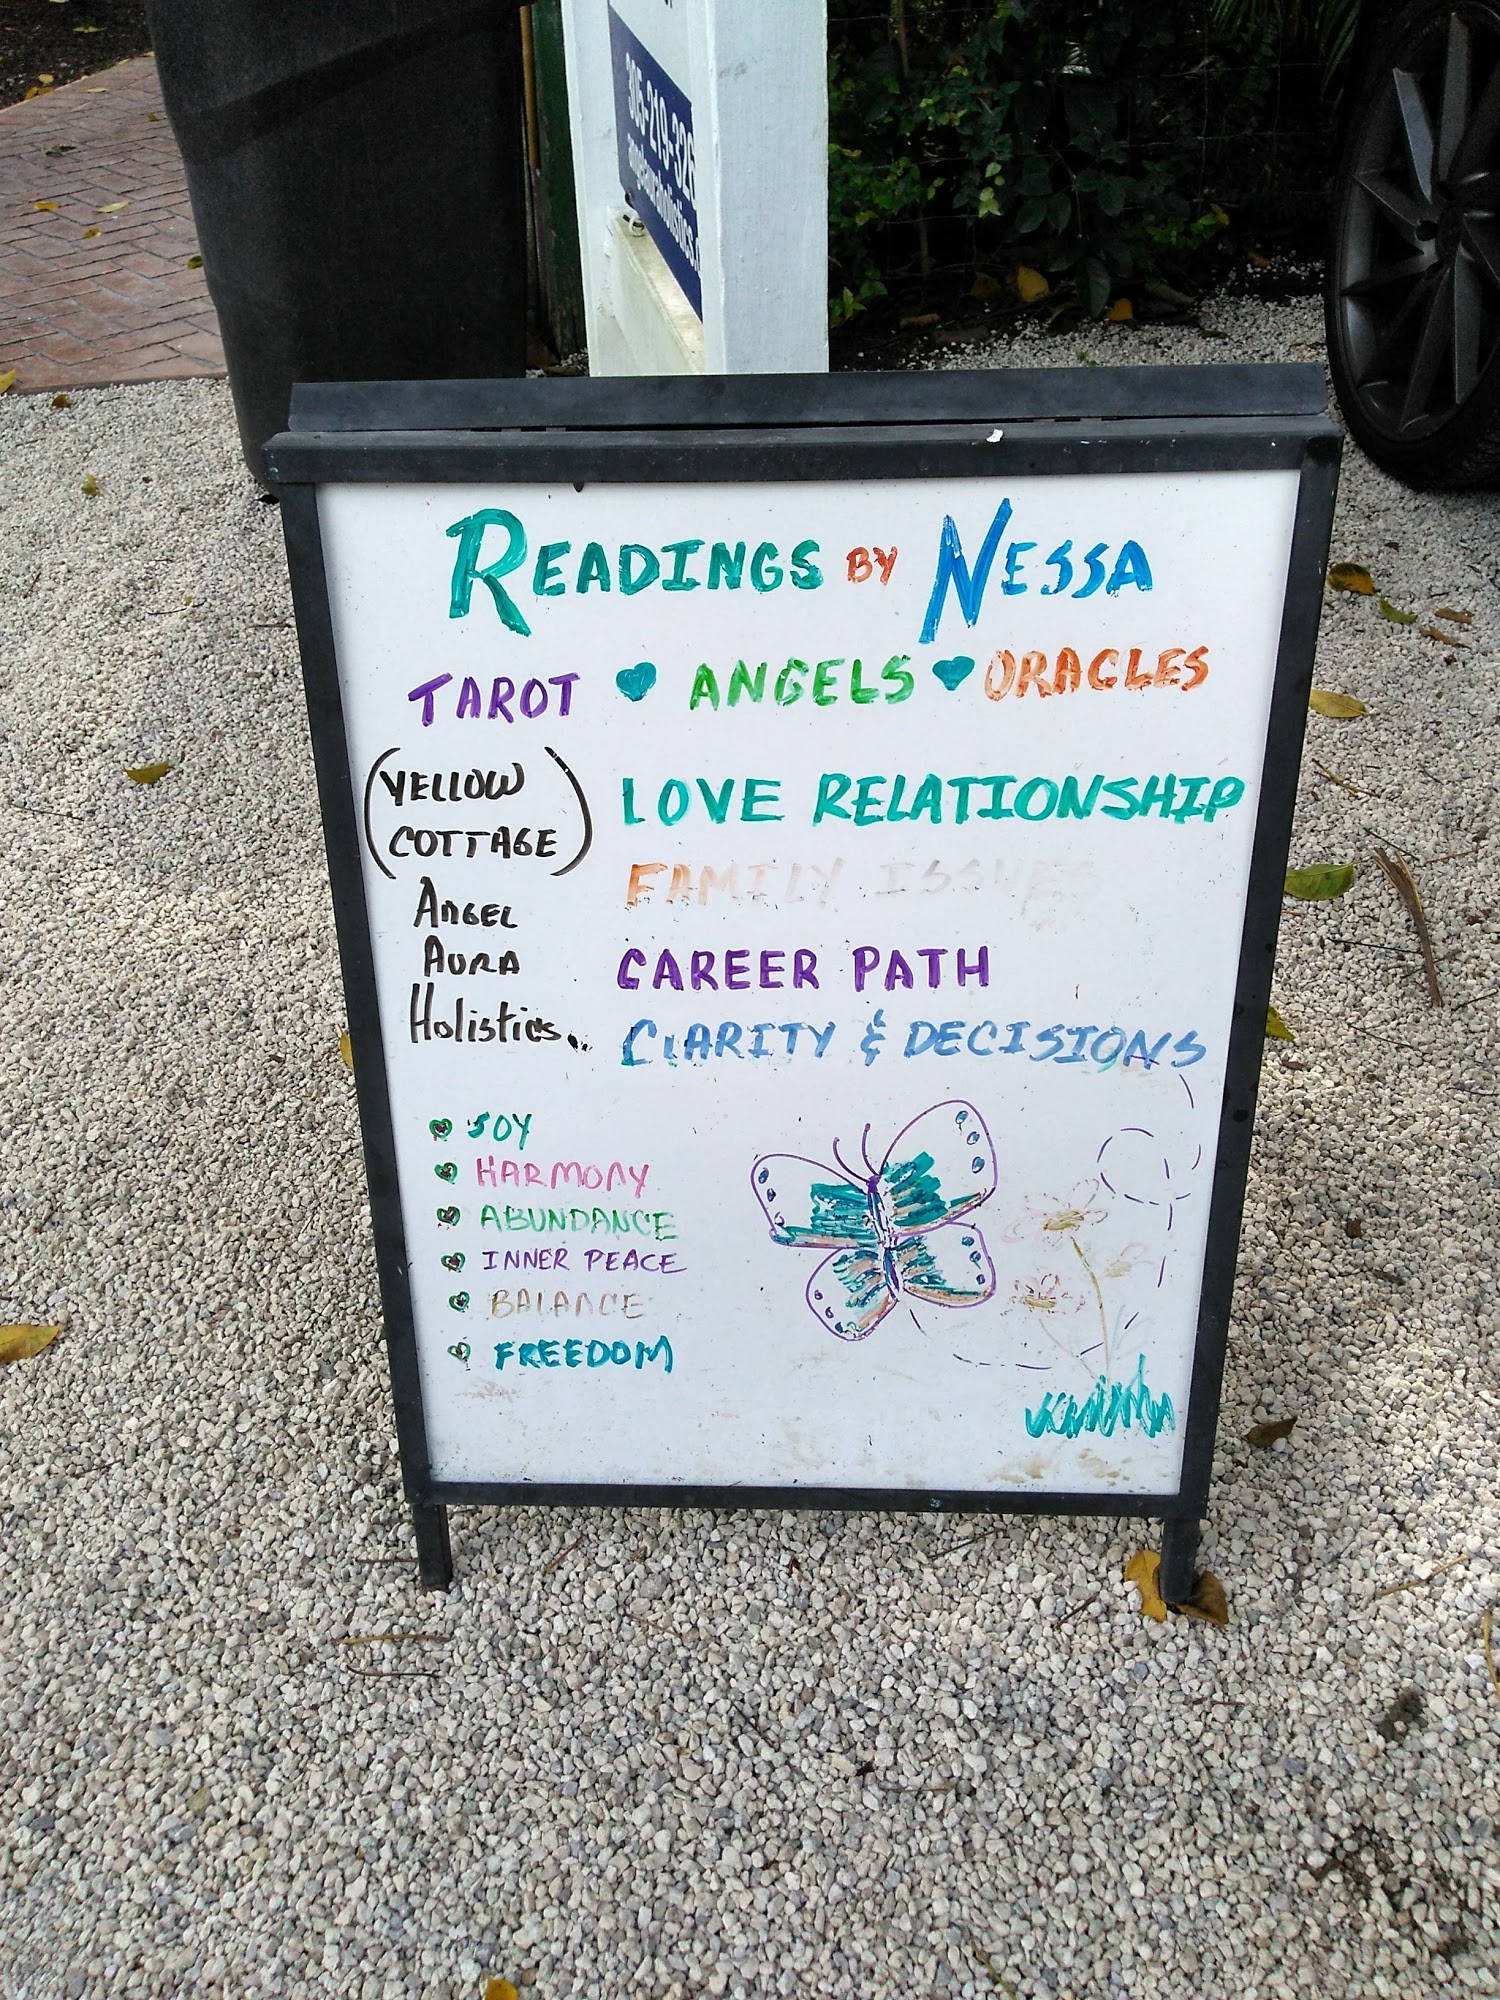 305-219-326
angelauraholistics.
READINGS BY NESSA
TAROT ANGELS ORACLES
(YELLOW
COTTAGE)
ANGEL
AURA
Holistics.
LOVE RELATIONSHIP
FAMILY ISSUES
CAREER PATH
CLARITY & DECISIONS
JOY
HARMONY
ABUNDANCE
INNER PEACE
BALANCE
FREEDOM